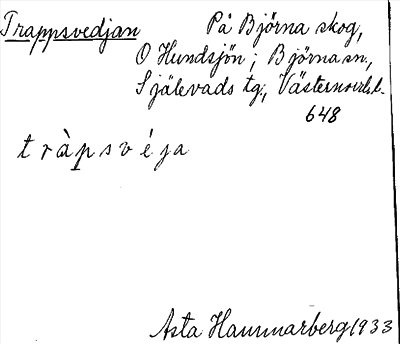 Trappsvedjan På Björna skog,
O Hundsjön; Björna sn.,
Själevads tg., Västernorrl. l.
648
tràpsvéja
Asta Hammarberg 1933